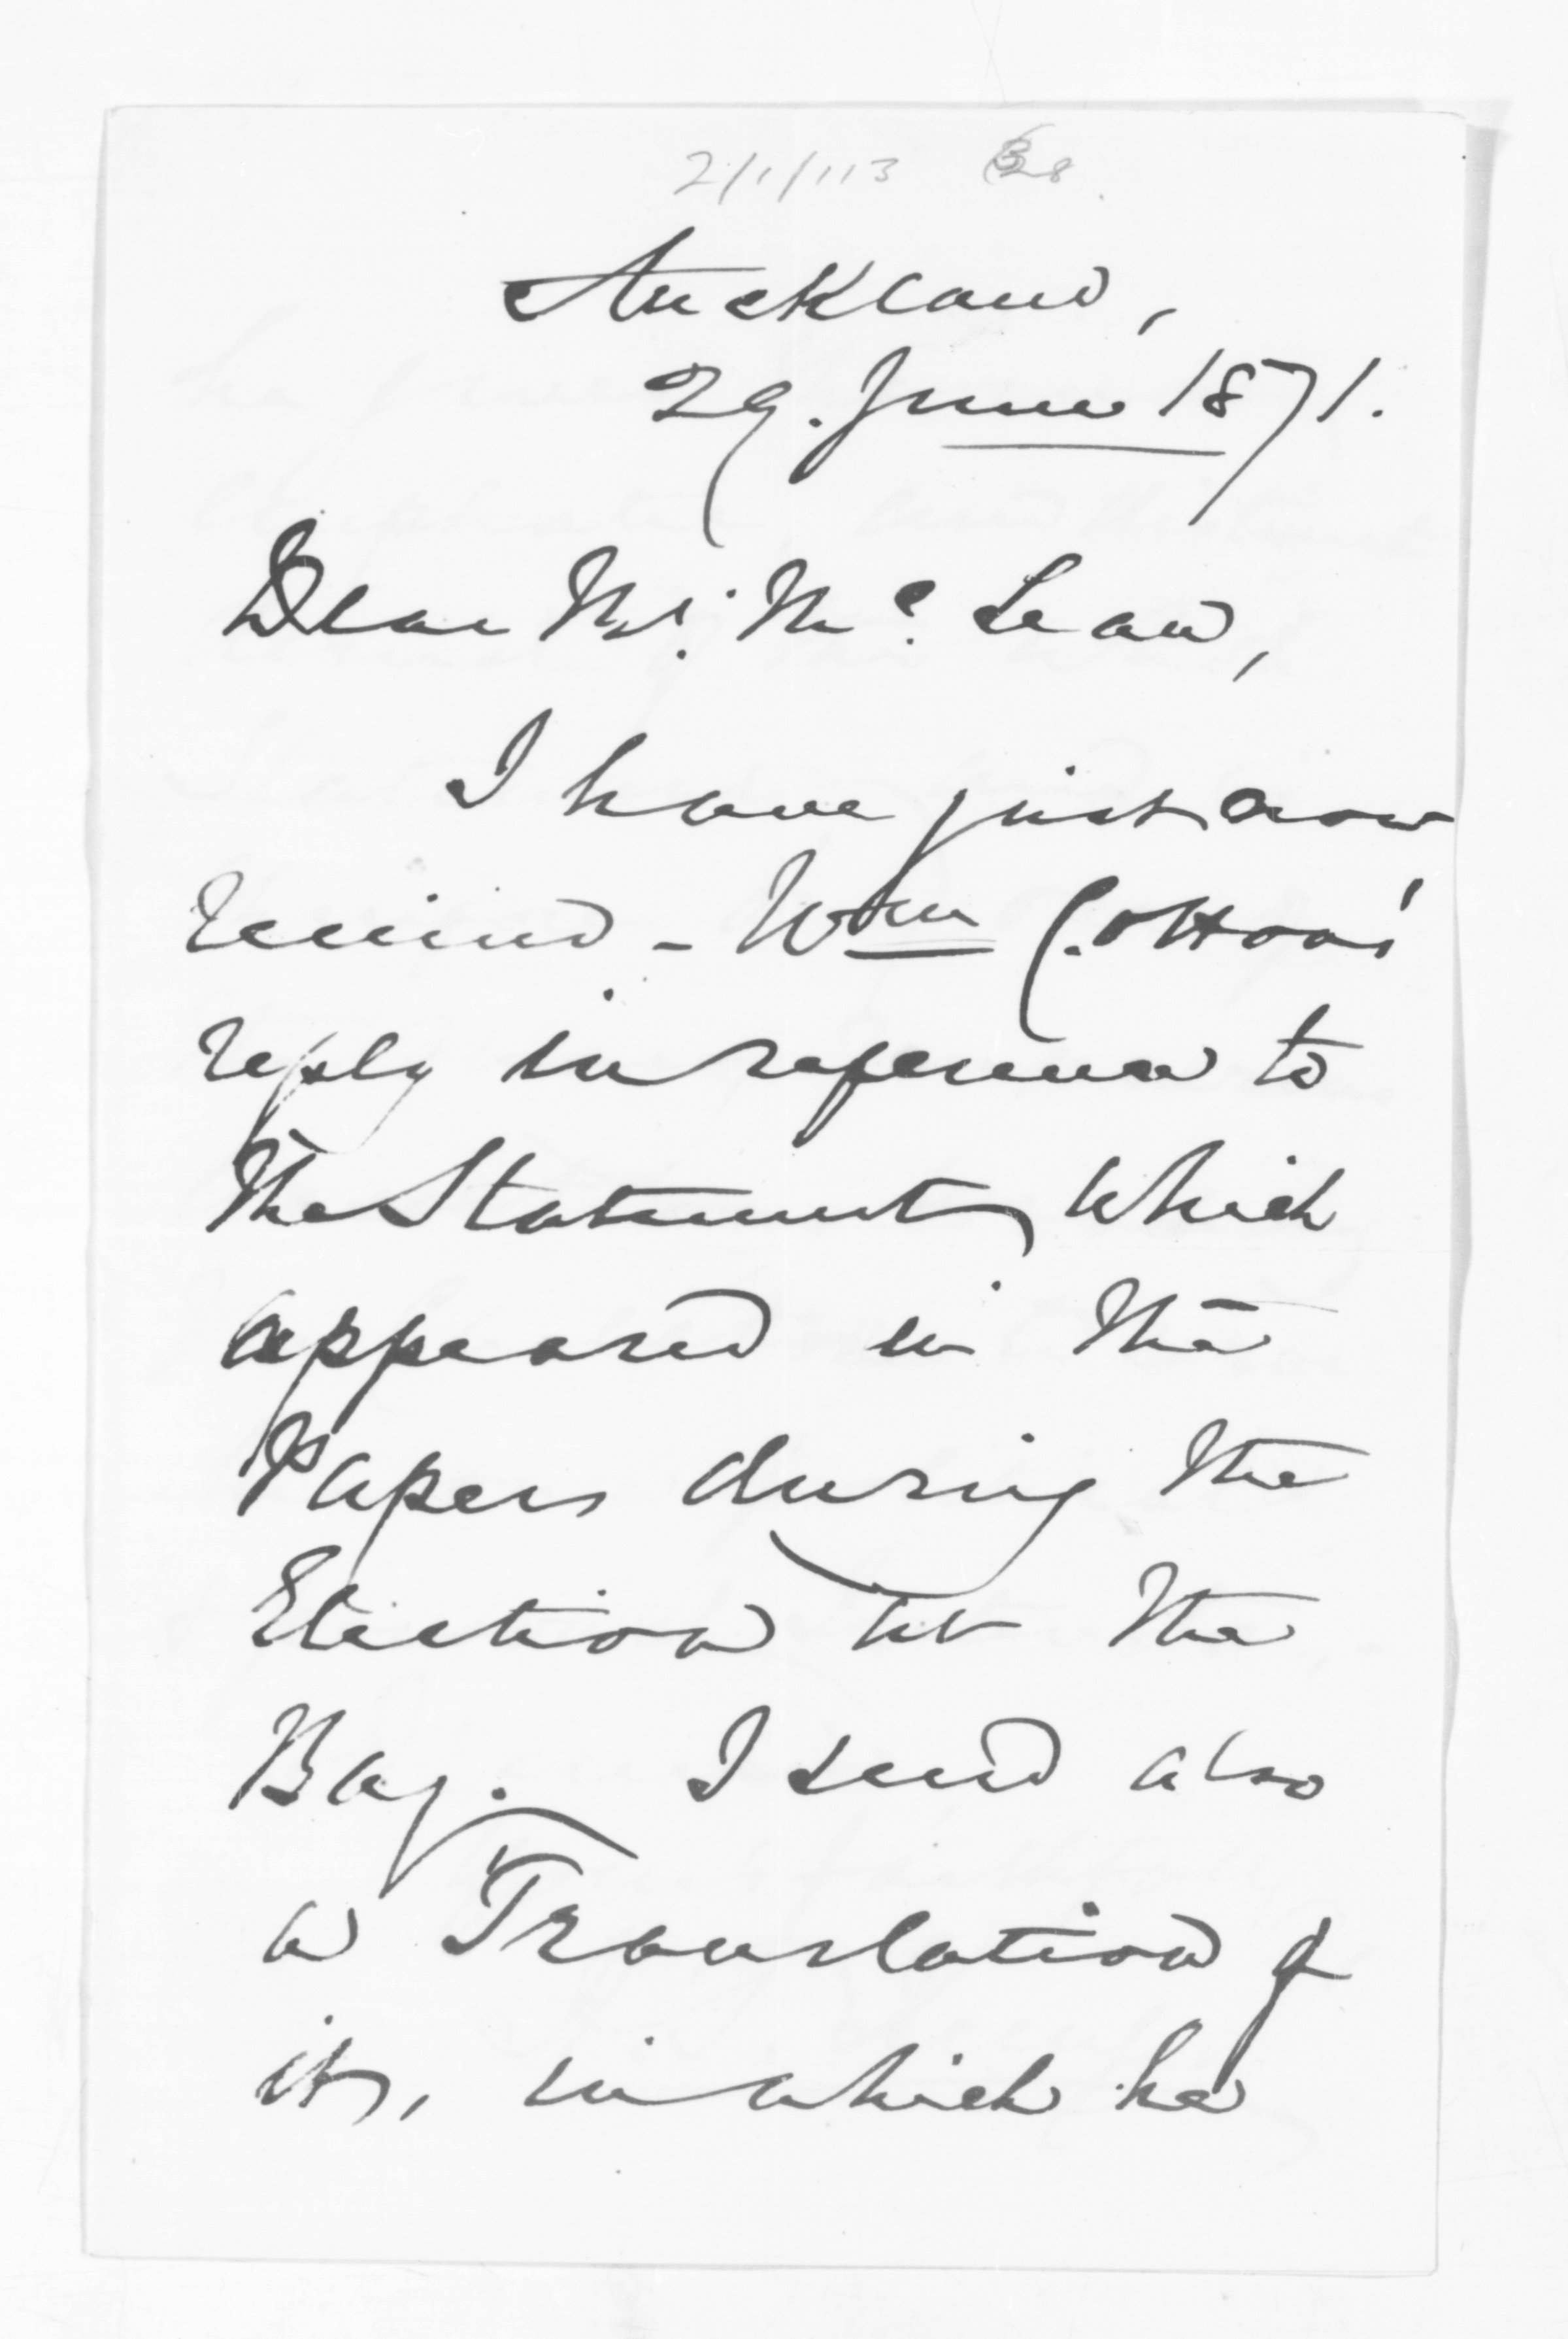 2/1/113 328
Auckland,
29. June 1871.
Dear Mr. McLean,
I have just now
received - Wm Cottons'
reply in reference to
the Statement which
appeared in the
Papers during the
Election at the
Bay. I send also
a Translation of
it, in which he